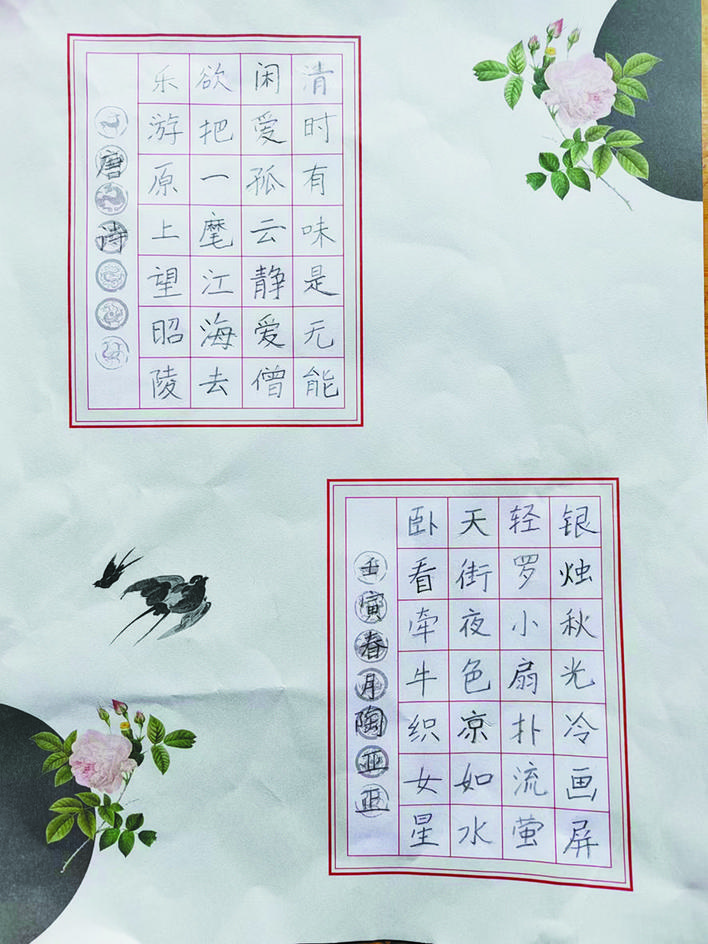 清时有味是无能
闲爱孤云静爱僧
欲把一麾江海去
乐游原上望昭陵
唐诗
银烛秋光冷画屏
轻罗小扇扑流萤
天街夜色凉如水
卧看牵牛织女星
壬寅春月陶亚正